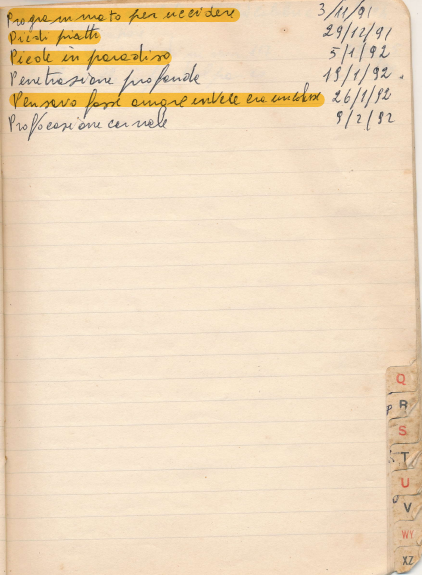 Programmato per uccidere 3/11/91
Piedi piatti 29/12/91
Piede in paradiso 5/1/92
Penetrazione profonda 19/1/92
Pensavo fosse amore invece era un calesse 26/1/92
Provocazione carnale 9/2/92
Q
R
S
T
U
V
WY
XZ